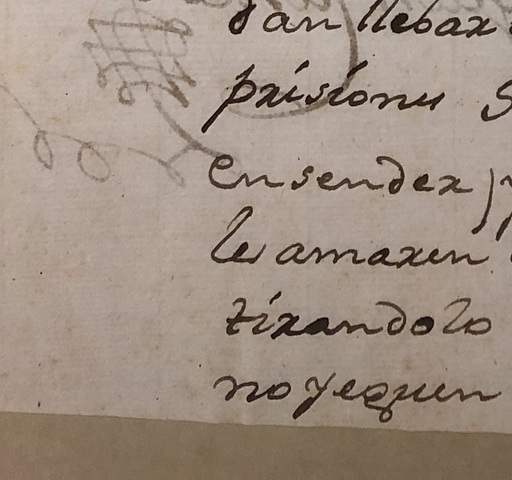 dan llebax
prisionu S
ensendex, y
le amaxen
tixandolo
no yequen